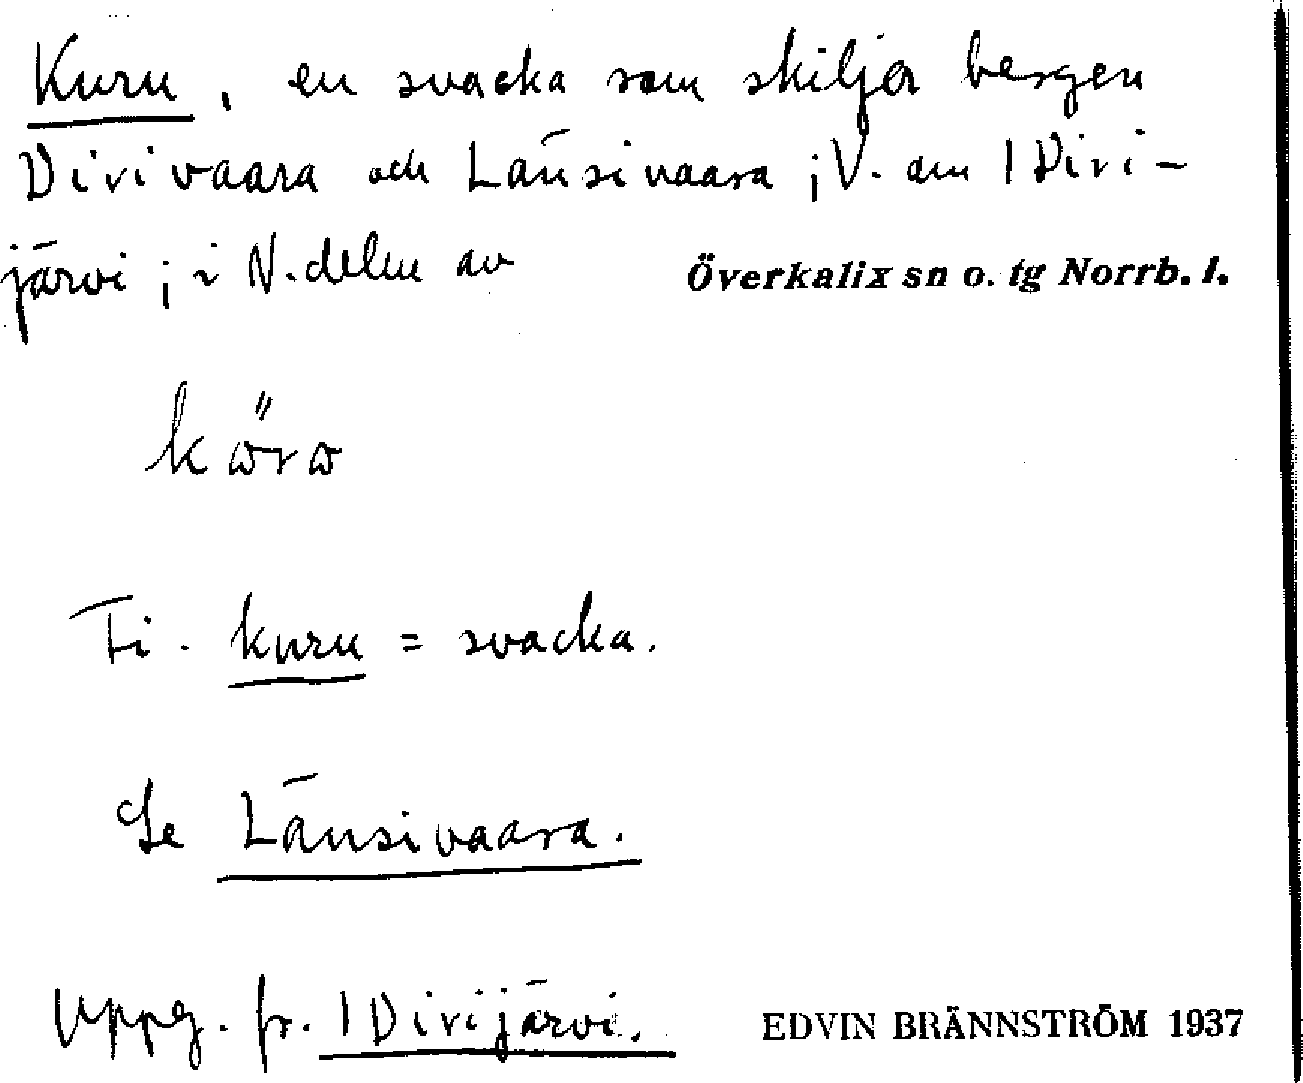 Kuru, en svacka som skiljer bergen
Dirivaara och Länsivaara; V. om 1 Diri-
järvi; i N. delen av Överkalix sn o. tg Norrb. l.
Fi. kuru = svacka.
Se Länsivaara.
Uppg. fr. 1 Dirijärvi. EDVIN BRÄNNSTRÖM 1937